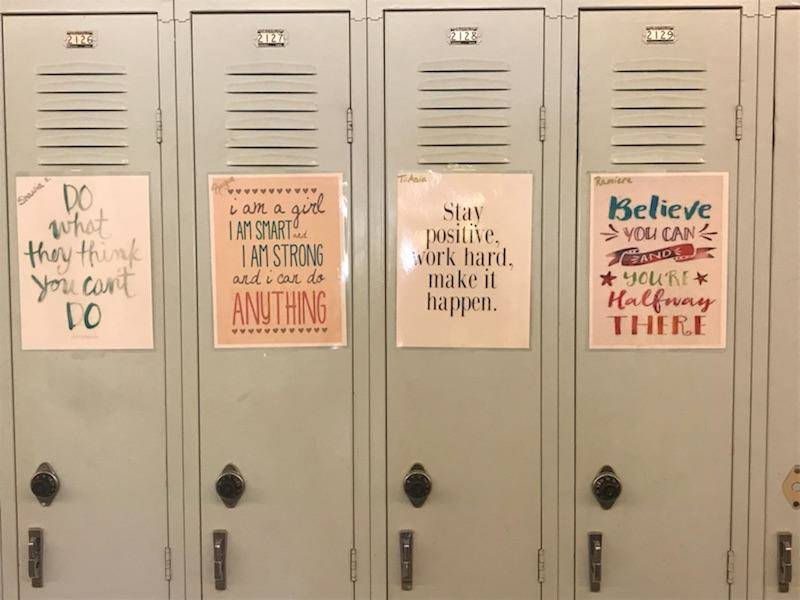 2126
2127
2128
2129
DO
what
they think
you can't
DO
i am a girl
I AM SMART and
I AM STRONG
and i can do
ANYTHING
TiAnia
Stay
positive,
work hard,
make it
happen.
Ramiere
Believe
YOU CAN
AND
YOU'RE
Halfway
THERE